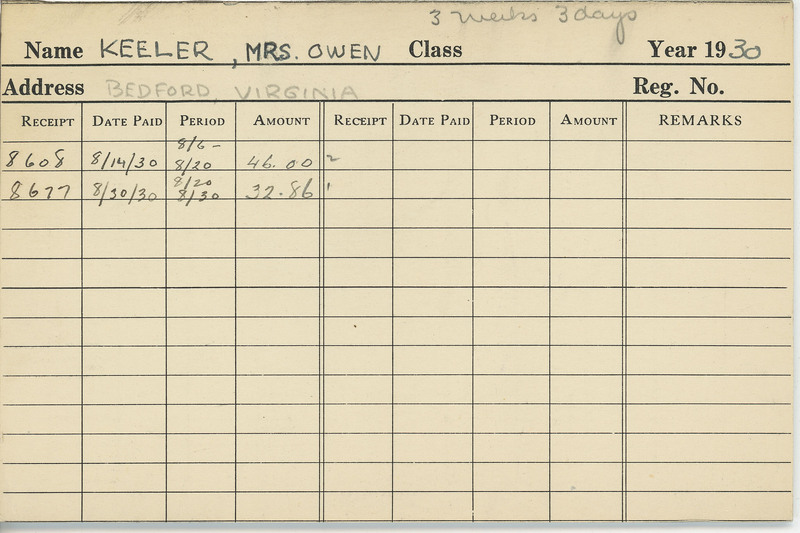 3 weeks 3 days
Name KEELER, MRS. OWEN Class Year 1930
Address BEDFORD, VIRGINIA Reg. No.
RECEIPT DATE PAID PERIOD AMOUNT RECEIPT DATE PAID PERIOD AMOUNT REMARKS
8/6-
8608 8/14/30 8/20 46.00 2
8/20
8677 8/30/30 8/30 32.86 1